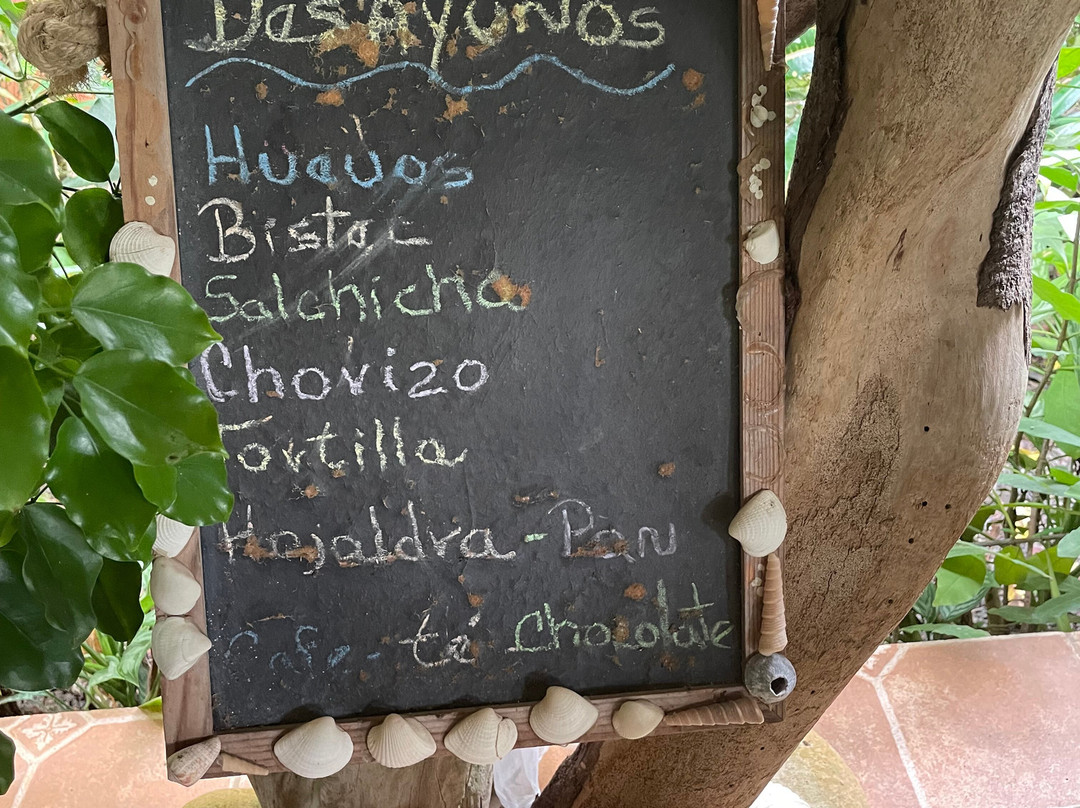 Desayunos
Huevos
Bistec
Salchicha
Chorizo
Tortilla
Hojaldra - Pan
Cafe - té Chocolate